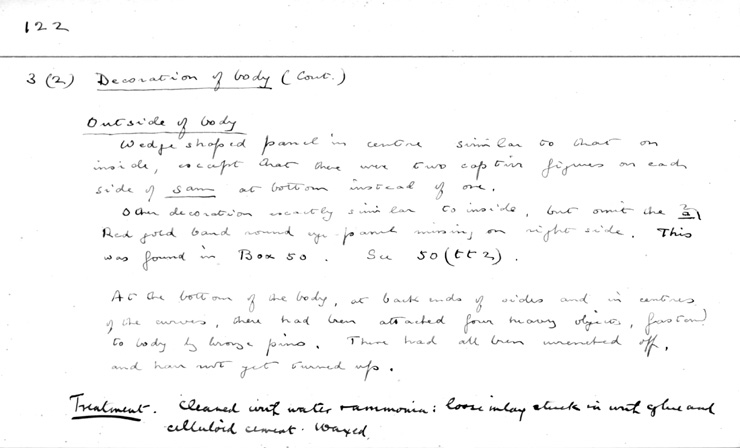 122
3 (2) Decoration of body (Cont.)
Outside of body
Wedge shaped panel in centre similar to that on
inside, except that there were two captive figures on each
side of sam at bottom instead of one.
Other decoration exactly similar to inside, but omit the
Red gold band round eye-panel missing on right side. This
was found in Box 50. See 50 (tt2).
At the bottom of the body, at back ends of sides and in centres
of the curves, there had been attached four heavy objects, fastened
to body by bronze pins. These had all been wrenched off,
and have not yet turned up.
Treatment. Cleaned with water + ammonia: loose inlay stuck in with glue and
celluloid cement. Waxed